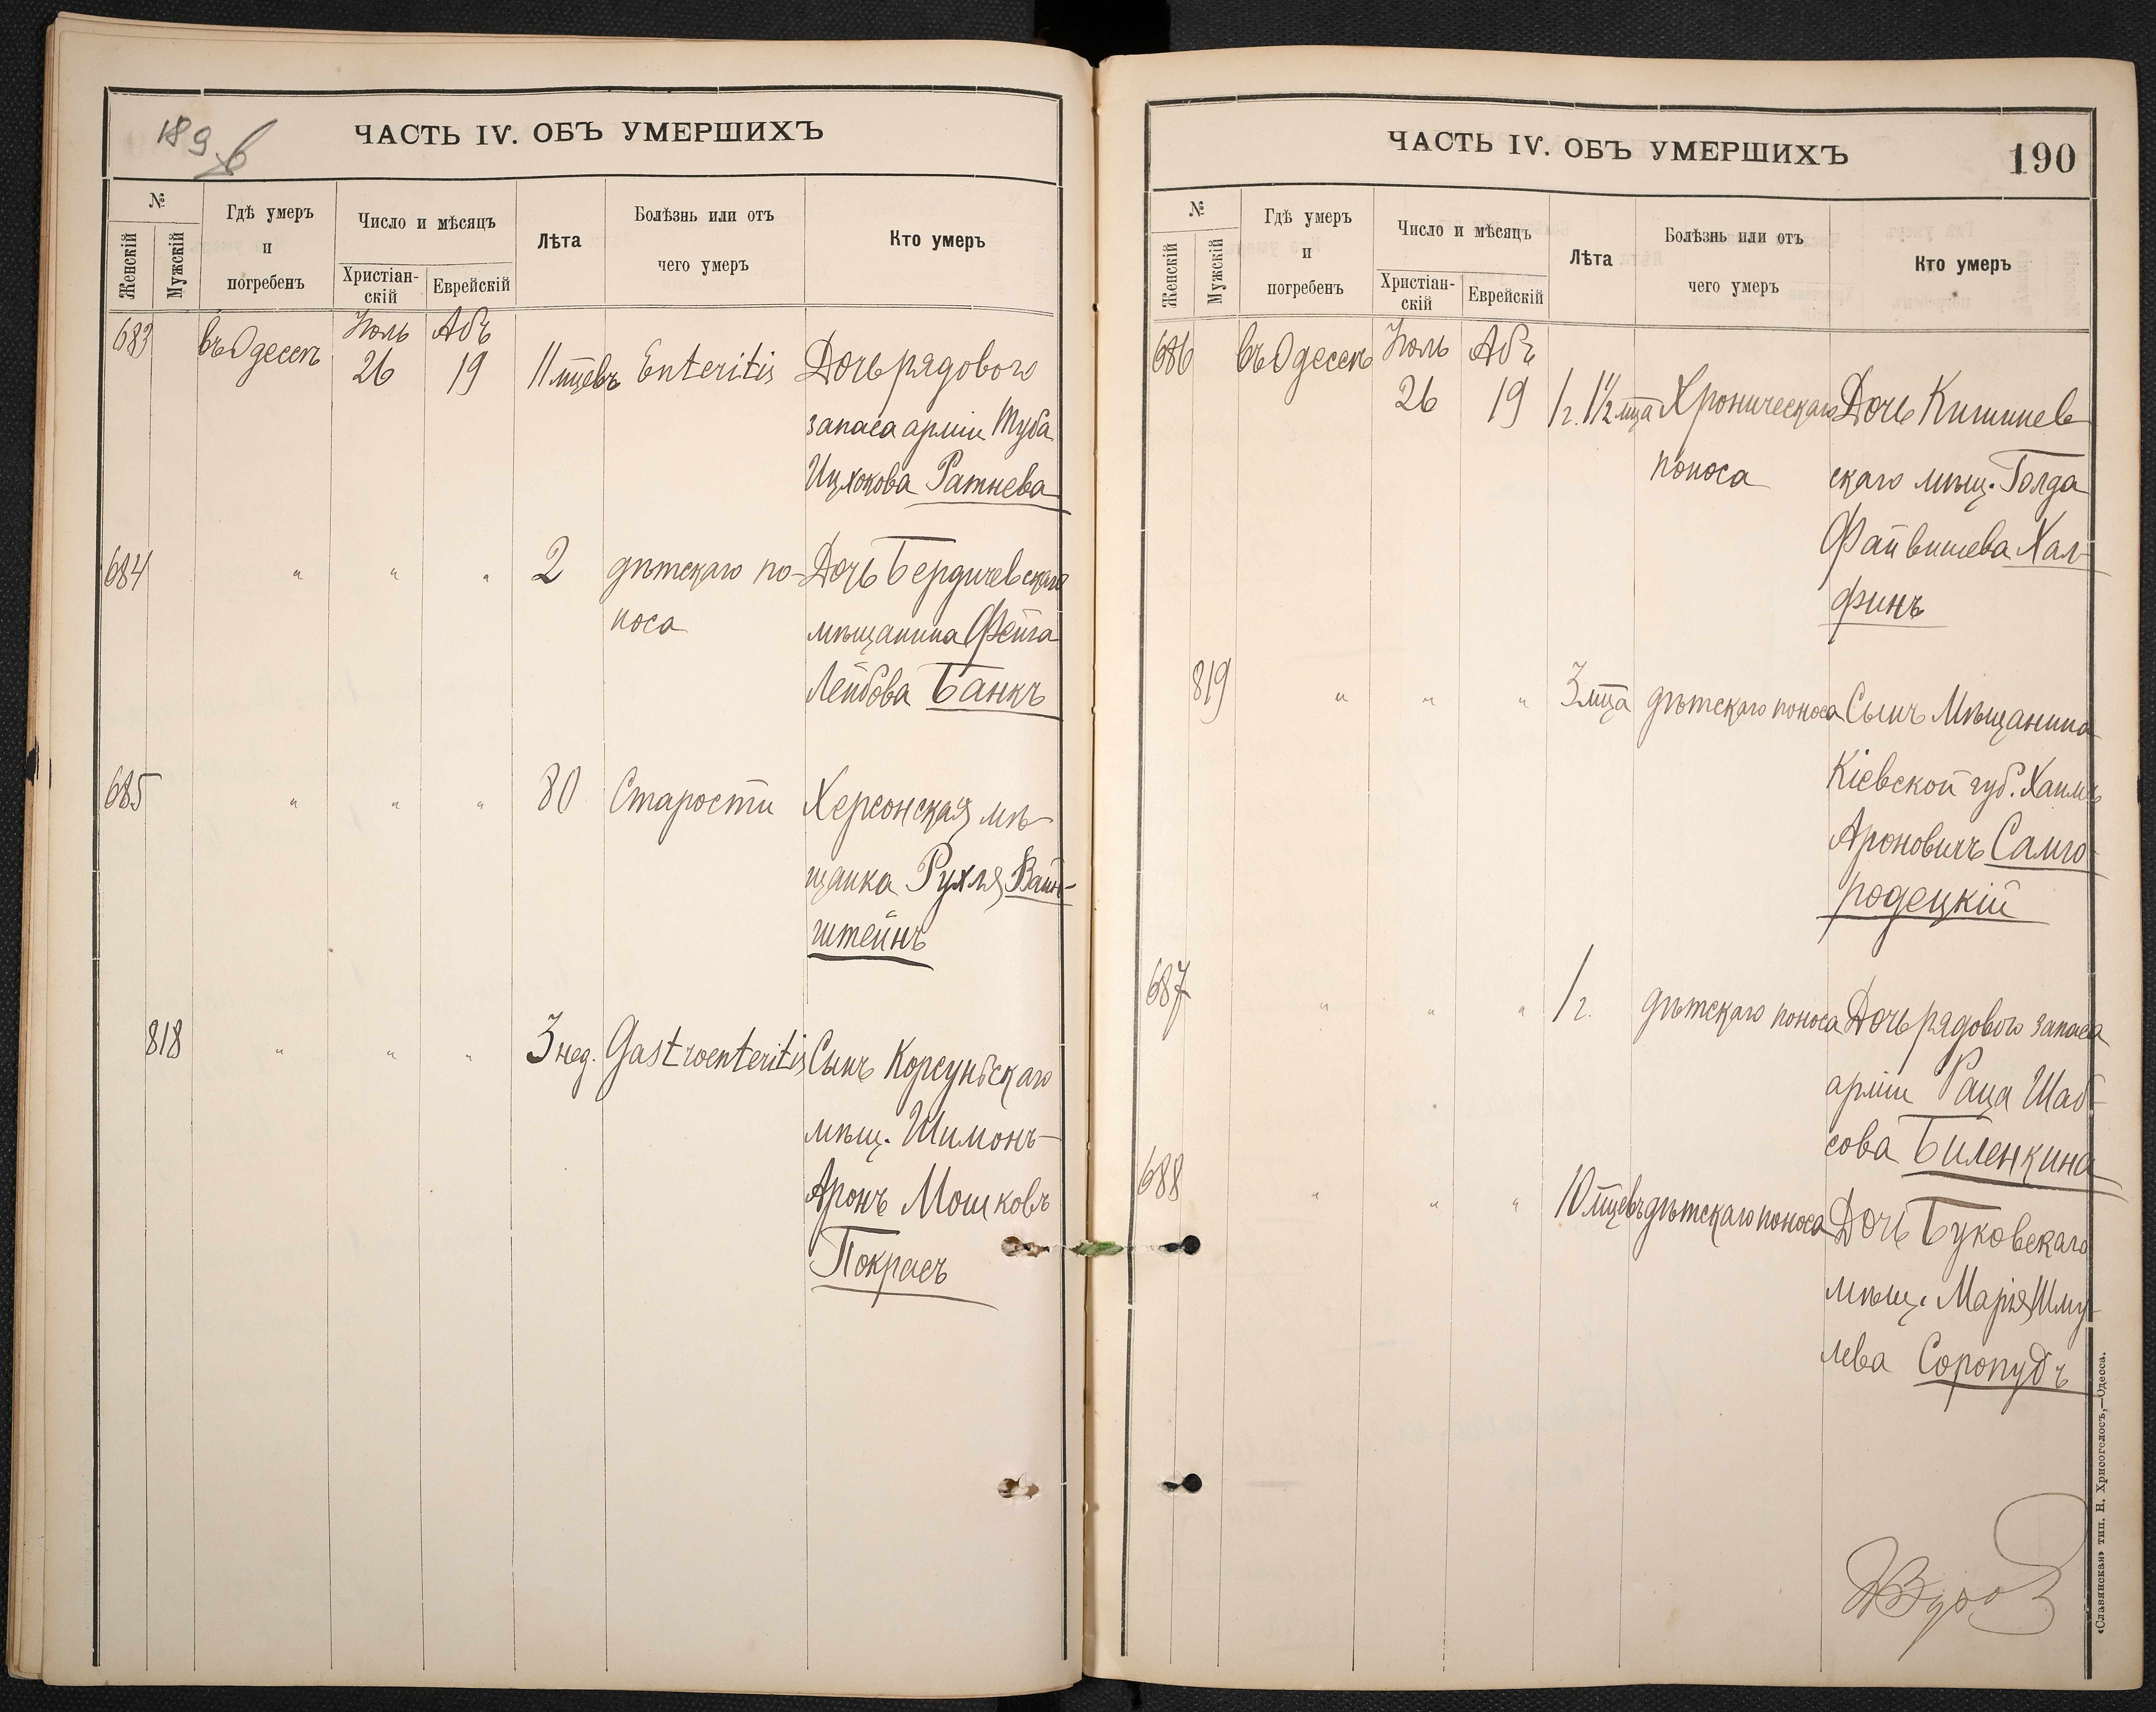 189 б
ЧАСТЬ IV. ОБЪ УМЕРШИХЪ
№
Женскій
Мужскій
Гдѣ умеръ
и
погребенъ
Число и мѣсяцъ
Христіан-
скій
Еврейскій
Лѣта
Болѣзнь или отъ
чего умеръ
Кто умеръ
683 въ Одессѣ Іюль 26 Абъ 19 11 мцевъ Enteritis Дочь рядового
запаса арміи Туба
Ицхокова Ратнева
684 " " " 2 дѣтскаго по- Дочь Бердичевскаго
носа мѣщанина Фейга
Лейбова Банкъ
685 " " " 80 Старости Херсонская мѣ-
щанка Рухля Вайн-
штейнъ
818 " " " 3 нед. Gastroenteritis Сынъ Корсуньскаго
мѣщ. Шимонъ-
Аронъ Мошковъ
Покрасъ
ЧАСТЬ IV. ОБЪ УМЕРШИХЪ
190
№
Женскій
Мужскій
Гдѣ умеръ
и
погребенъ
Число и мѣсяцъ
Христіан-
скій
Еврейскій
Лѣта
Болѣзнь или отъ
чего умеръ
Кто умеръ
686 въ Одессѣ Іюль 26 Абъ 19 1 г. 1 1/2 мца Хроническаго Дочь Кишинев
поноса скаго мѣщ. Голда
Файвишева Хал-
финъ
819 " " " 3 мца дѣтскаго поноса Сынъ Мѣщанина
Кіевской губ. Хаимъ
Ароновичъ Самго-
родецкій
687 " " " 1 г. дѣтскаго поноса Дочь рядового запаса
арміи Раца Шаб-
сова Биленкина
688 " " " 10 мцевъ дѣтскаго поноса Дочь Буковскаго
мѣщ. Марія Шму-
лева Соропудъ
«Славянская» тип. Н. Хрисогелосъ,—Одесса.